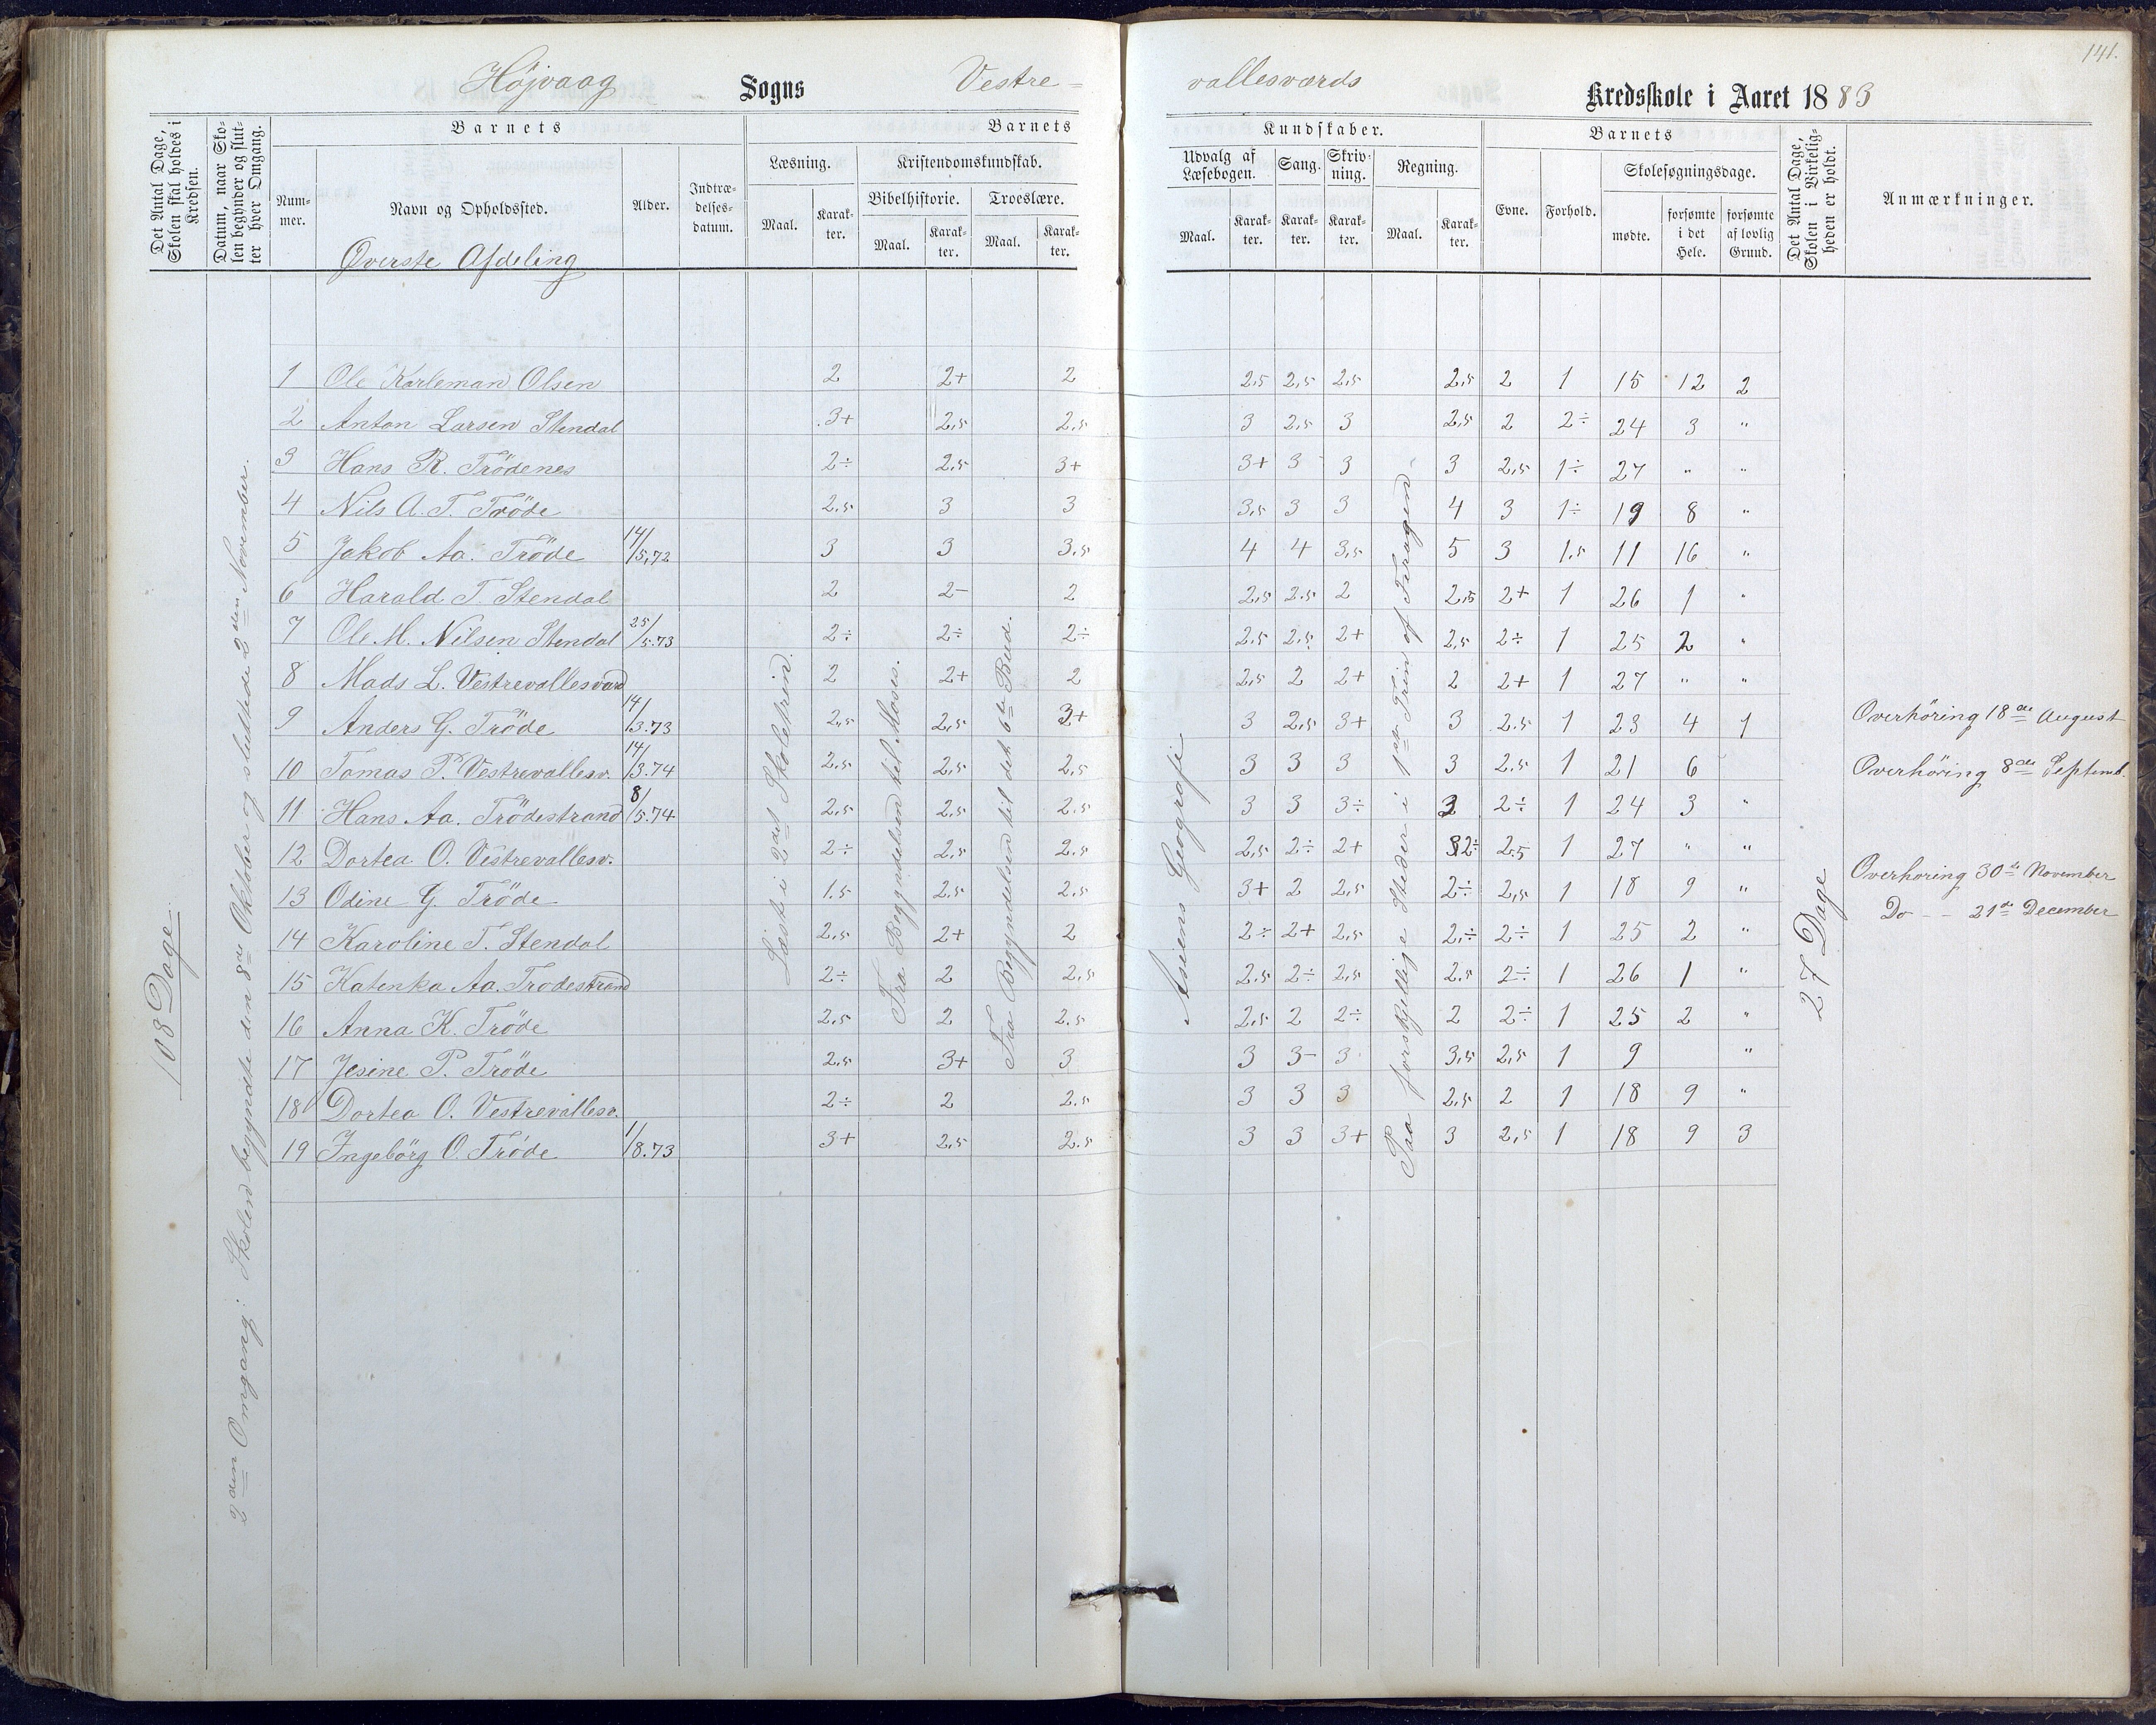 141.
Höjvaag Sogns Vestre= vallesværds Kredsskole i Aaret 1883
Det Antal Dage, Skolen skal holdes i Kredsen.
Datum, naar Skolen begynder og slutter hver Omgang.
Barnets
Nummer.
Navn og Opholdssted.
Øverste Afdeling
Alder.
Indtrædelsesdatum.
Barnets Kundskaber.
Læsning.
Maal. Karakter.
Kristendomskundskab.
Bibelhistorie. Troeslære.
Maal. Karakter. Maal. Karakter.
Udvalg af Læsebogen. Sang. Skrivning. Regning.
Maal. Karakter. Karakter. Karakter. Maal. Karakter.
Barnets
Evne. Forhold. Skolesøgningsdage.
mødte. forsømte i det Hele. forsømte af lovlig Grund.
Det Antal Dage, Skolen i Virkeligheden er holdt.
Anmærkninger.
108 Dage
2den Omgang: Skolen begyndte den 8de Oktober og sluttede 2den November.
Læste i 2det Skoletrin.
Fra Begyndelsen til Moses.
Fra Begyndelsen til det 6te Bud.
Asiens Geografi
Paa forskjellige Steder i 1ste Trin af Firagen
27 Dage
1 Ole Karleman Olsen 2 2+ 2 2,5 2,5 2,5 2,5 2 1 15 12 2
2 Anton Larsen Stendal 3+ 2,5 2,5 3 2,5 3 2,5 2 2÷ 24 3 "
3 Hans R. Trödenes 2÷ 2,5 3+ 3+ 3 3 3 2,5 1÷ 27 " "
4 Nils A. T. Tröde 2,5 3 3 3,5 3 3 4 3 1÷ 19 8 "
5 Jakob Aa. Tröde 14/5,72 3 3 3,5 4 4 3,5 5 3 1,5 11 16 "
6 Harald T. Stendal 2 2- 2 2,5 2,5 2 2,5 2+ 1 26 1 "
7 Ole M. Nilsen Stendal 25/5.73 2÷ 2÷ 2÷ 2,5 2,5 2+ 2,5 2÷ 1 25 2 "
8 Mads L. Vestrevallesværd 2 2+ 2 2,5 2 2+ 2 2+ 1 27 " "
9 Anders G. Tröde 14/3.73 2,5 2,5 3+ 3 2,5 3+ 3 2,5 1 23 4 1
10 Tomas P. Vestrevallesv. 14/3.74 2,5 2,5 2,5 3 3 3 3 2,5 1 21 6
11 Hans Aa. Trödestrand 8/5.74 2,5 2,5 2,5 3 3 3÷ 3 2÷ 1 24 3 "
12 Dortea O. Vestrevallesv. 2÷ 2,5 2,5 2,5 2÷ 2+ 2÷ 2,5 1 27 " "
13 Odine G. Tröde 1.5 2,5 2,5 3+ 2 2,5 2÷ 2,5 1 18 9 "
14 Karoline T. Stendal 2,5 2+ 2 2÷ 2+ 2,5 2,÷ 2÷ 1 25 2 "
15 Katenka Aa. Trödestrand 2÷ 2 2,5 2,5 2÷ 2,5 2,5 2÷ 1 26 1 "
16 Anna K. Tröde 2,5 2 2,5 2,5 2 2÷ 2 2÷ 1 25 2 "
17 Jesine P. Tröde 2,5 3+ 3 3 3- 3 3,5 2,5 1 9 "
18 Dortea O. Vestrevallesv. 2÷ 2 2,5 3 3 3 2,5 2 1 18 9 "
19 Ingebörg O. Tröde 1/8.73 3+ 2,5 2,5 3 3 3+ 3 2,5 1 18 9 3
Overhöring 18de August
Overhöring 8de Septemb.
Overhöring 30te November
Do - - 21de December